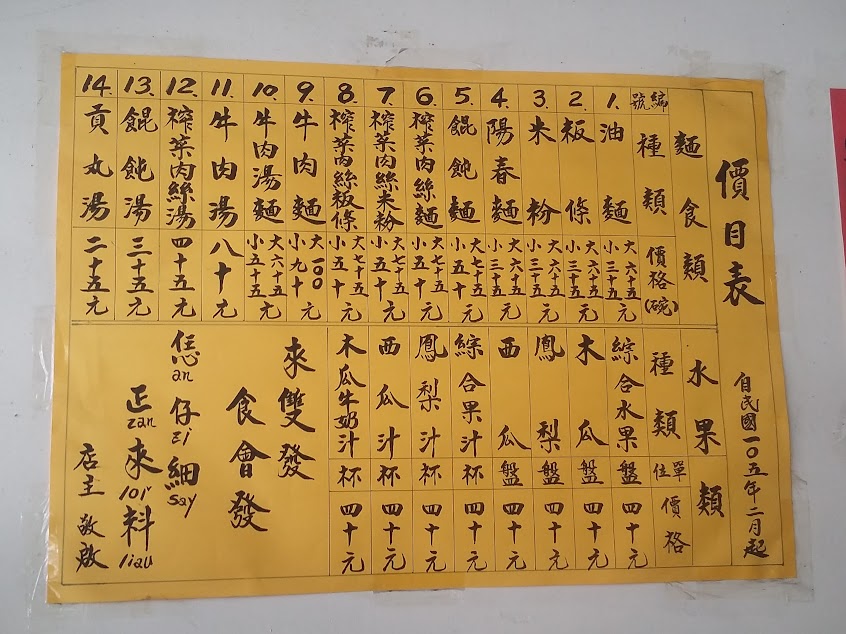 價目表
自民國一〇五年二月起
麵食類
編號 種類 價格(碗)
1. 油麵 大六十五 小三十五元
2. 粄條 大六十五 小三十五元
3. 米粉 大六十五 小三十五元
4. 陽春麵 大六十五 小三十五元
5. 餛飩麵 大七十五 小五十元
6. 榨菜肉絲麵 大七十五 小五十元
7. 榨菜肉絲米粉 大七十五 小五十元
8. 榨菜肉絲粄條 大七十五 小五十元
9. 牛肉麵 大一00 小九十元
10. 牛肉湯麵 大六十五 小五十五元
11. 牛肉湯 八十元
12. 榨菜肉絲湯 四十五元
13. 餛飩湯 三十五元
14. 貢丸湯 二十五元
水果類
種類 單位 價格
綜合水果 盤 四十元
木瓜 盤 四十元
鳳梨 盤 四十元
西瓜 盤 四十元
綜合果汁 杯 四十元
鳳梨汁 杯 四十元
西瓜汁 杯 四十元
木瓜牛奶汁 杯 四十元
來雙發
食會發
恁an仔zi細say
正zan來lor料liau
店主 敬啟